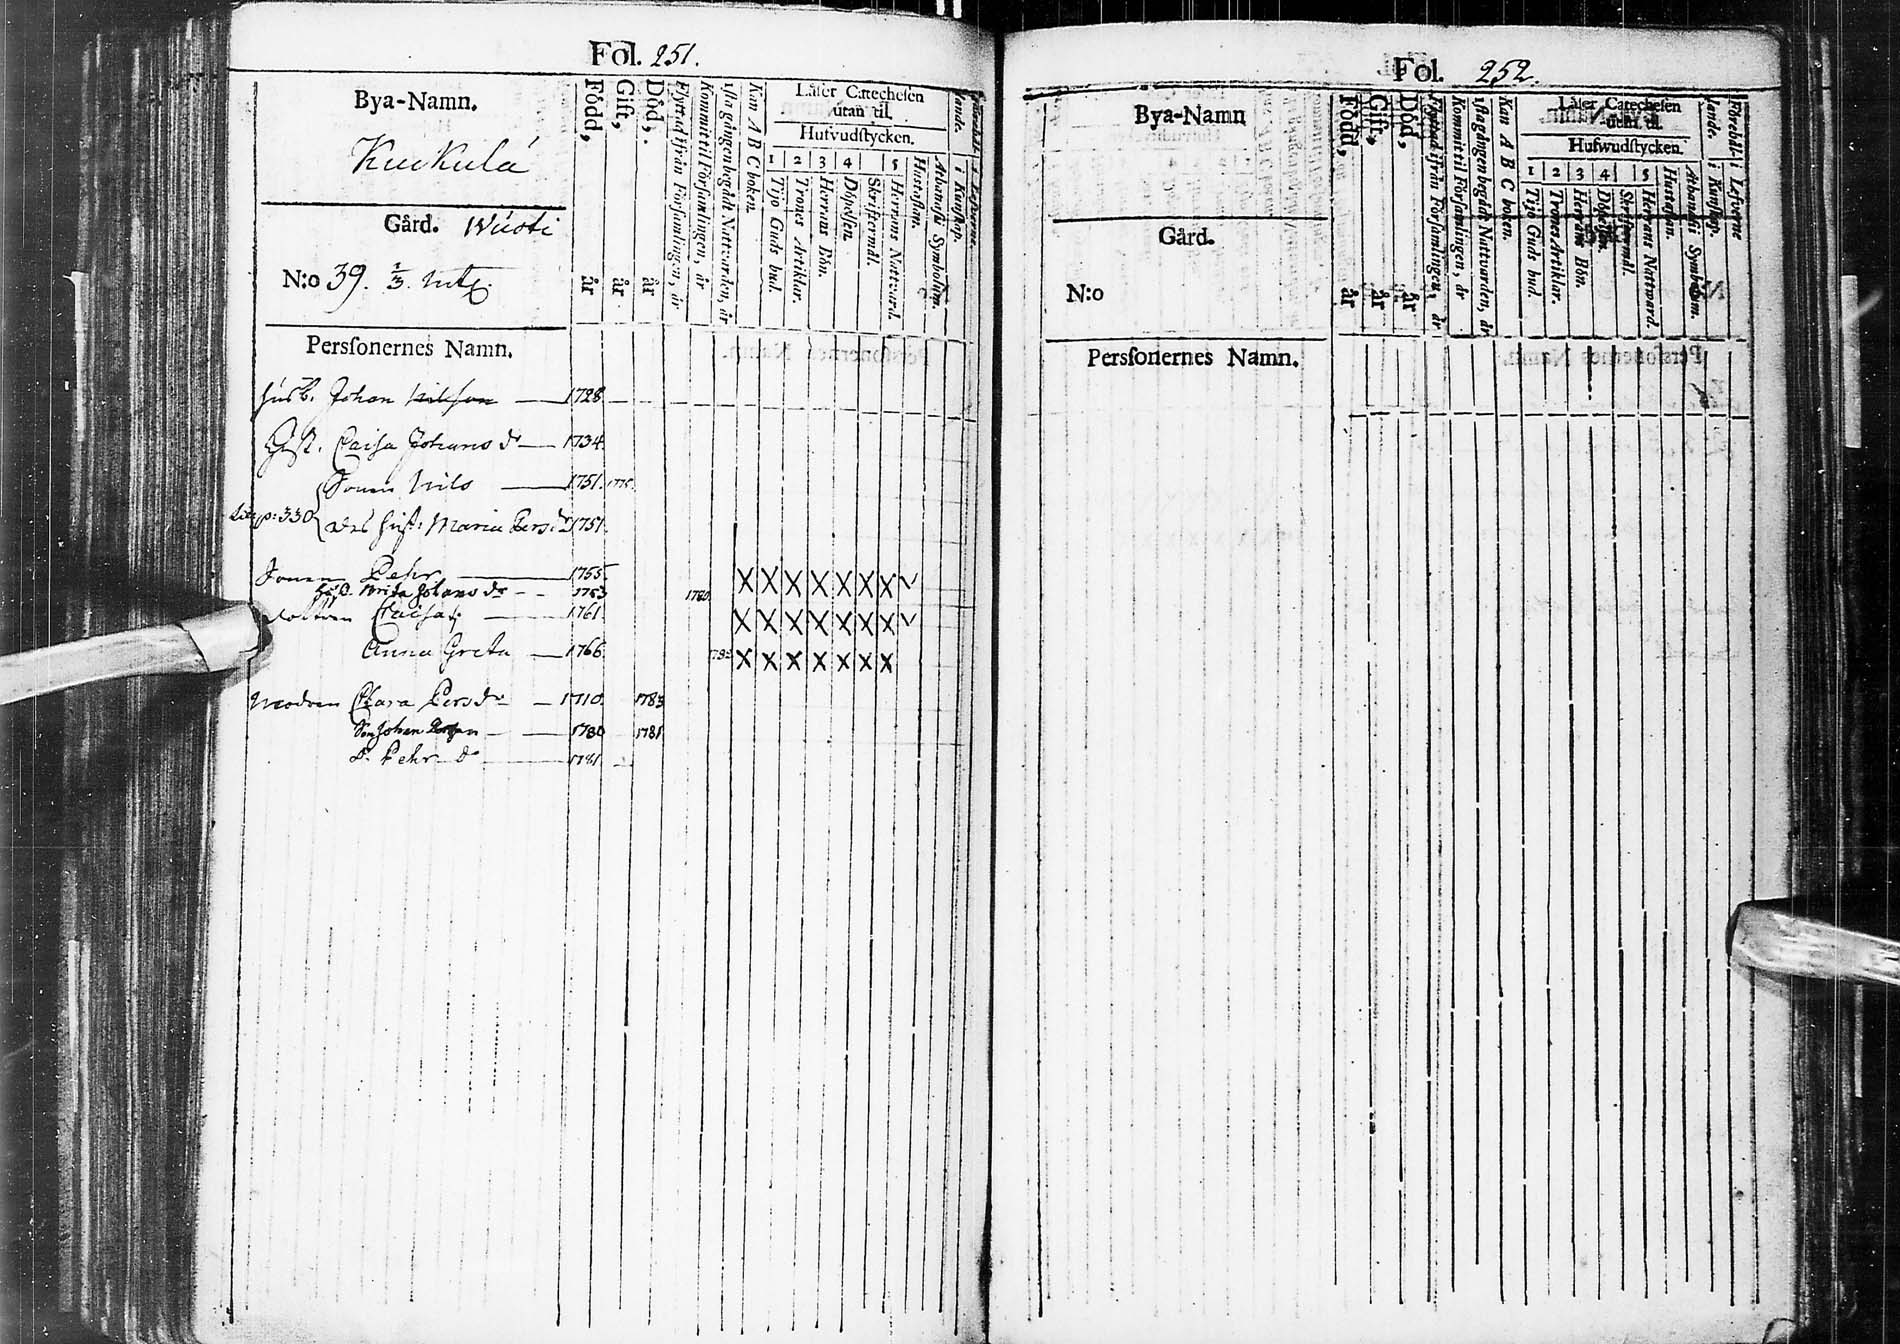 Fol. 251.
Bya-Namn.
Kuckula
Gård. Wuoti
N:o 39. 1/3. mtl.
Född, år
Gift, år
Död, år
Flyttad ifrån Församlingen, år
Kommit til Församlingen, år
1sta gången begådt Nattvarden, år
Kan A B C boken.
Läser Catechesen utan til.
Hufvudstycken.
1 2 3 4 5
Tijo Guds bud.
Trones Artiklar.
Herrans Bön.
Döpelsen.
Skriftermål.
Herrans Nattvard.
Hustaflan.
Athanasii Symbolum.
i Kunskap.
i Lefverne.
Personernes Namn.
husb. Johan Nilsson — 1728
Hust. Caisa Johans dr — 1734.
Sonen Nils — 1751. 1775.
Lit. p: 330 Des hust: Maria Pers dr 1751.
Sonen Pehr — 1755 X X X X X X X
hu. Brita Johans dr - - 1753 1780.
dottren Caisa — 1761 X X X X X X X
Anna Greta — 1766 1782 X X X X X X X
modren Clara Pers dr — 1710. 1783
Son Johan Persson — 1780 1781
D. Pehr do — 1781
Fol. 252.
Bya-Namn
Gård.
N:o
Född, år
Gift, år
Död, år
Flyttad ifrån Församlingen, år
Kommit til Församlingen, år
1sta gången begådt Nattvarden, år
Kan A B C boken.
Läser Catechesen utan til.
Hufwudstycken.
1 2 3 4 5
Tijo Guds bud.
Trones Artiklar.
Herrans Bön.
Döpelsen.
Skriftermål.
Herrans Nattward.
Hustaflan.
Athanasii Symbolum.
Förebållande.
i Kunskap.
i Lefverne
Personernes Namn.